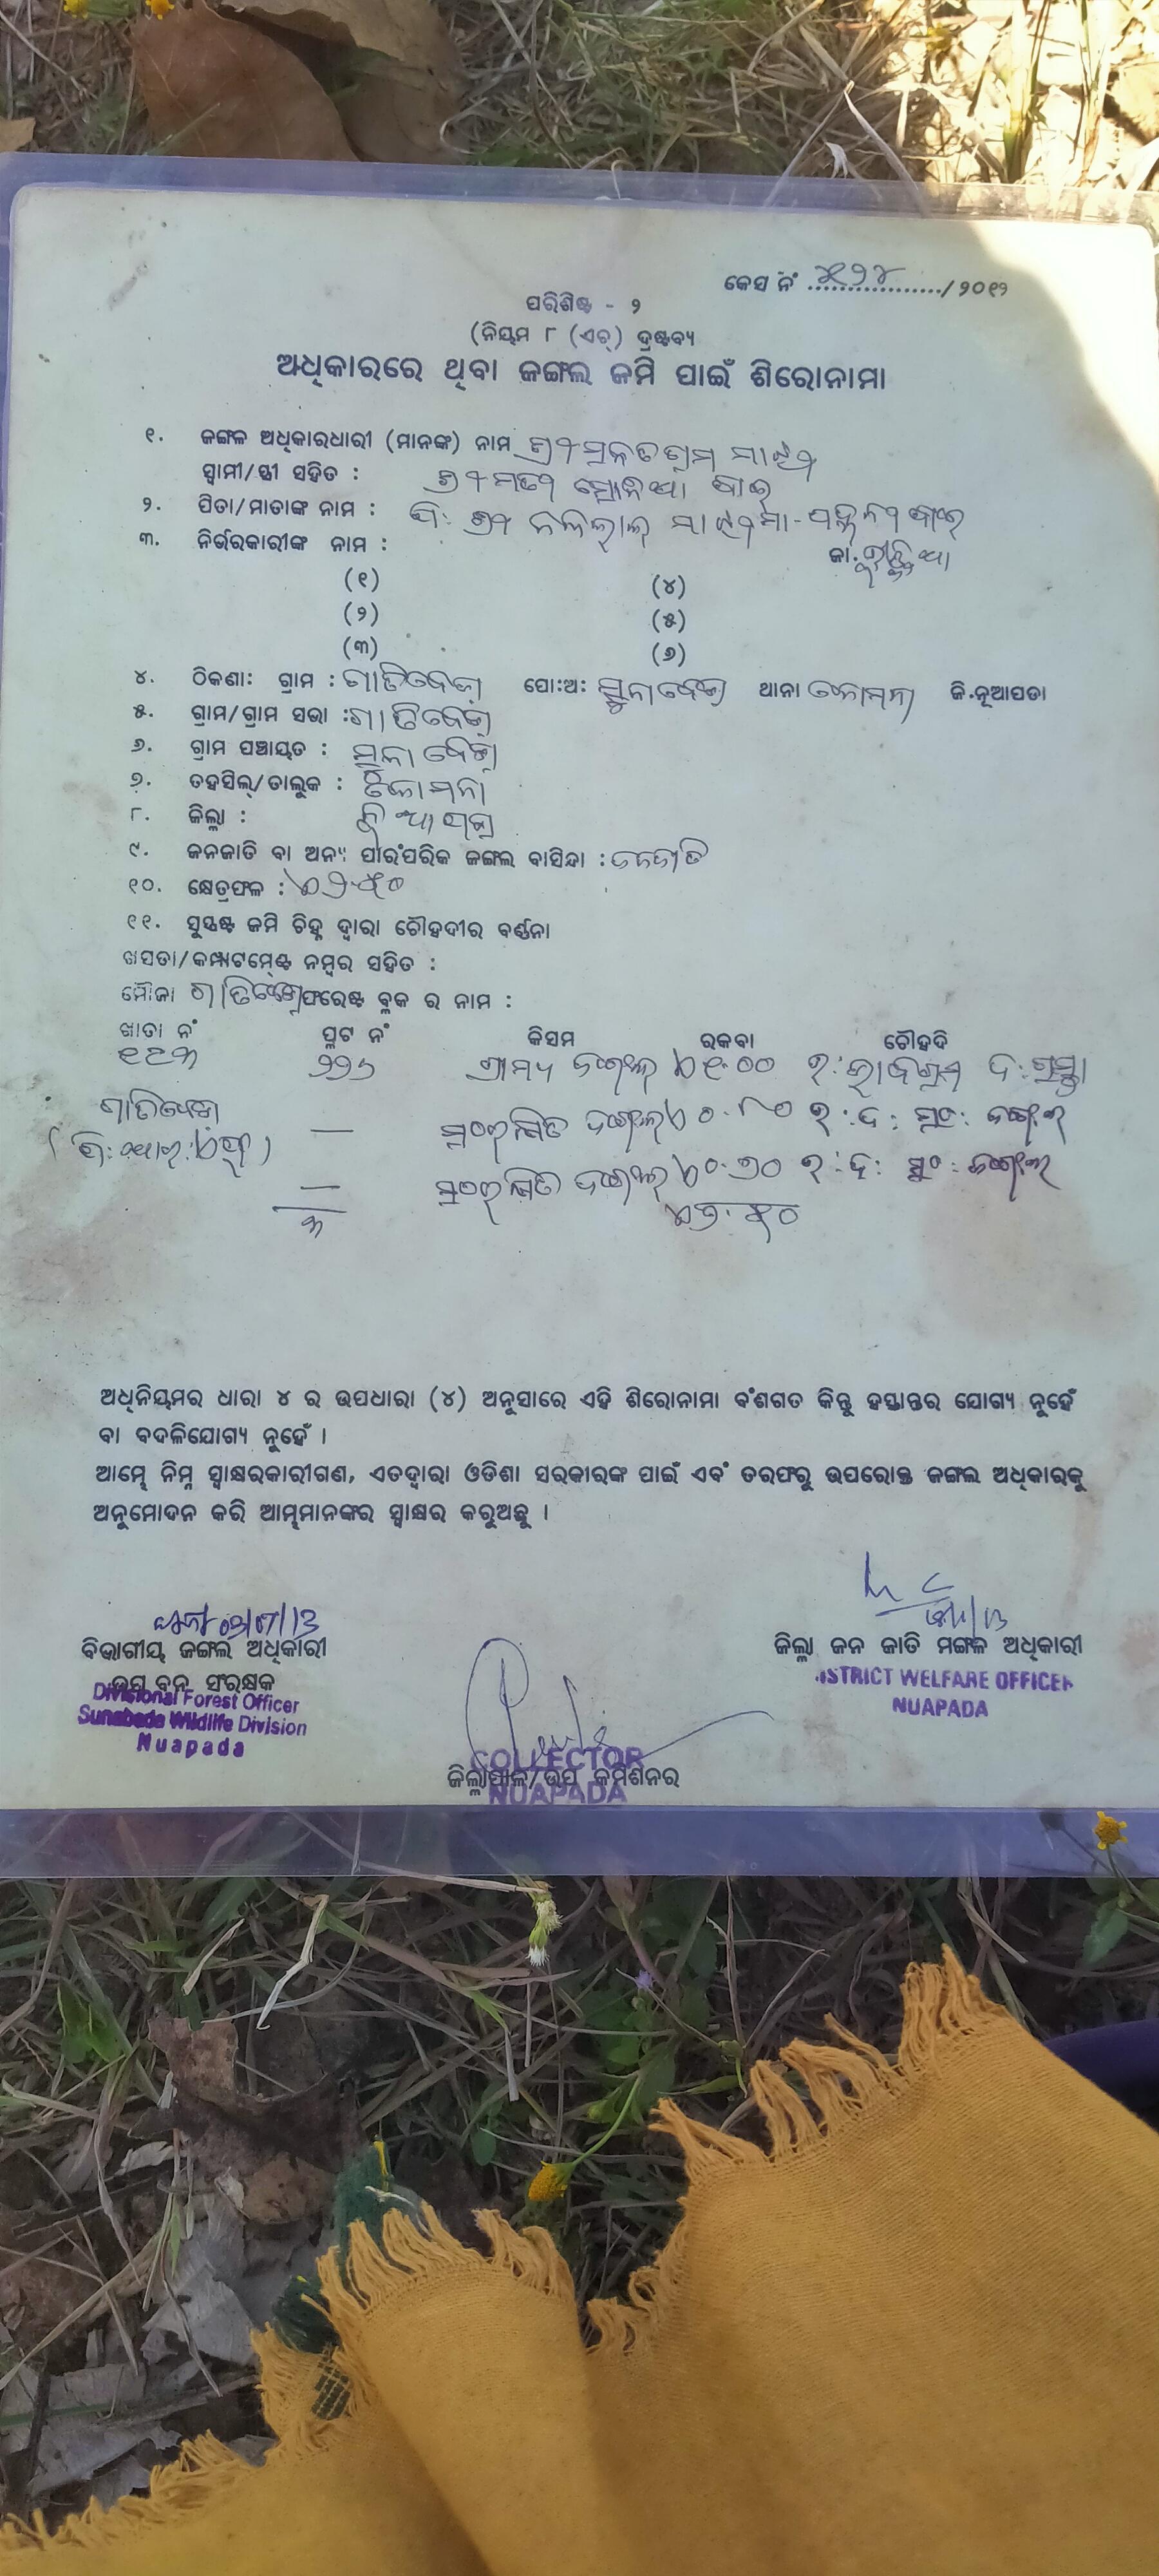 କେସ ନଂ ୪୧୨୪ /୨୦୧୨
ପରିଶିଷ୍ଟ - ୨
(ନିୟମ ୮ (ଏଚ୍) ଦ୍ରଷ୍ଟବ୍ୟ
ଅଧିକାରରେ ଥିବା ଜଙ୍ଗଲ ଜମି ପାଇଁ ଶିରୋନାମା
୧. ଜଙ୍ଗଳ ଅଧିକାରଧାରୀ (ମାନଙ୍କ) ନାମ ଶ୍ରୀ ମାଝୀ
ସ୍ୱାମୀ/ସ୍ତ୍ରୀ ସହିତ : ଶ୍ରୀମତୀ ବାଈ
୨. ପିତା/ମାତାଙ୍କ ନାମ : ପି: ଶ୍ରୀ ମାଝୀ ମା- ବାଈ
୩. ନିର୍ଭରକାରୀଙ୍କ ନାମ : ଜା.
(୧) (୪)
(୨) (୫)
(୩) (୬)
୪. ଠିକଣା: ଗ୍ରାମ : ଗାତିବେଡ଼ା ପୋ:ଅ: ସୁନାବେଡ଼ା ଥାନା କୋମନା ଜି.ନୂଆପଡା
୫. ଗ୍ରାମ/ଗ୍ରାମ ସଭା : ଗାତିବେଡ଼ା
୬. ଗ୍ରାମ ପଞ୍ଚାୟତ : ସୁନାବେଡ଼ା
୭. ତହସିଲ୍/ତାଲୁକ : କୋମନା
୮. ଜିଲ୍ଲା : ନୂଆପଡ଼ା
୯. ଜନଜାତି ବା ଅନ୍ୟ ପାରଂପରିକ ଜଙ୍ଗଲ ବାସିନ୍ଦା : ଜନଜାତି
୧୦. କ୍ଷେତ୍ରଫଳ :
୧୧. ସୁସ୍ପଷ୍ଟ ଜମି ଚିହ୍ନ ଦ୍ୱାରା ଚୌହଦୀର ବର୍ଣ୍ଣନା
ଖସଡା/କମ୍ପାଟମେଣ୍ଟ ନମ୍ବର ସହିତ :
ମୌଜା ଗାତିବେଡ଼ା ଫରେଷ୍ଟ ବ୍ଲକ ର ନାମ :
ଖାତା ନଂ ପ୍ଲଟ ନଂ କିସମ ରକବା ଚୌହଦି
୨୨୬ ଗ୍ରାମ୍ୟ ଜଙ୍ଗଲ ଉ: ଦ: ରାସ୍ତା
ଗାତିବେଡ଼ା — ସଂରକ୍ଷିତ ଜଙ୍ଗଲ ୦.୮୦ ଉ: ଦ: ସଂ: ଜଙ୍ଗଲ
— ସଂରକ୍ଷିତ ଜଙ୍ଗଲ ୦.୭୦ ଉ: ଦ: ସଂ: ଜଙ୍ଗଲ
୩
ଅଧିନିୟମର ଧାରା ୪ ର ଉପଧାରା (୪) ଅନୁସାରେ ଏହି ଶିରୋନାମା ବଂଶଗତ କିନ୍ତୁ ହସ୍ତାନ୍ତର ଯୋଗ୍ୟ ନୁହେଁ
ବା ବଦଳିଯୋଗ୍ୟ ନୁହେଁ ।
ଆମ୍ଭେ ନିମ୍ନ ସ୍ୱାକ୍ଷରକାରୀଗଣ, ଏତଦ୍ୱାରା ଓଡିଶା ସରକାରଙ୍କ ପାଇଁ ଏବଂ ତରଫରୁ ଉପରୋକ୍ତ ଜଙ୍ଗଲ ଅଧିକାରକୁ
ଅନୁମୋଦନ କରି ଆମ୍ଭମାନଙ୍କର ସ୍ୱାକ୍ଷର କରୁଅଛୁ ।
ବିଭାଗୀୟ ଜଙ୍ଗଲ ଅଧିକାରୀ ଜିଲ୍ଲା ଜନ ଜାତି ମଙ୍ଗଳ ଅଧିକାରୀ
ଉପ ବନ ସଂରକ୍ଷକ
DISTRICT WELFARE OFFICER
NUAPADA
Divisional Forest Officer
Sunabeda Wildlife Division
Nuapada
COLLECTOR
ଜିଲ୍ଲାପାଳ/ଉପ କମିଶନର
NUAPADA